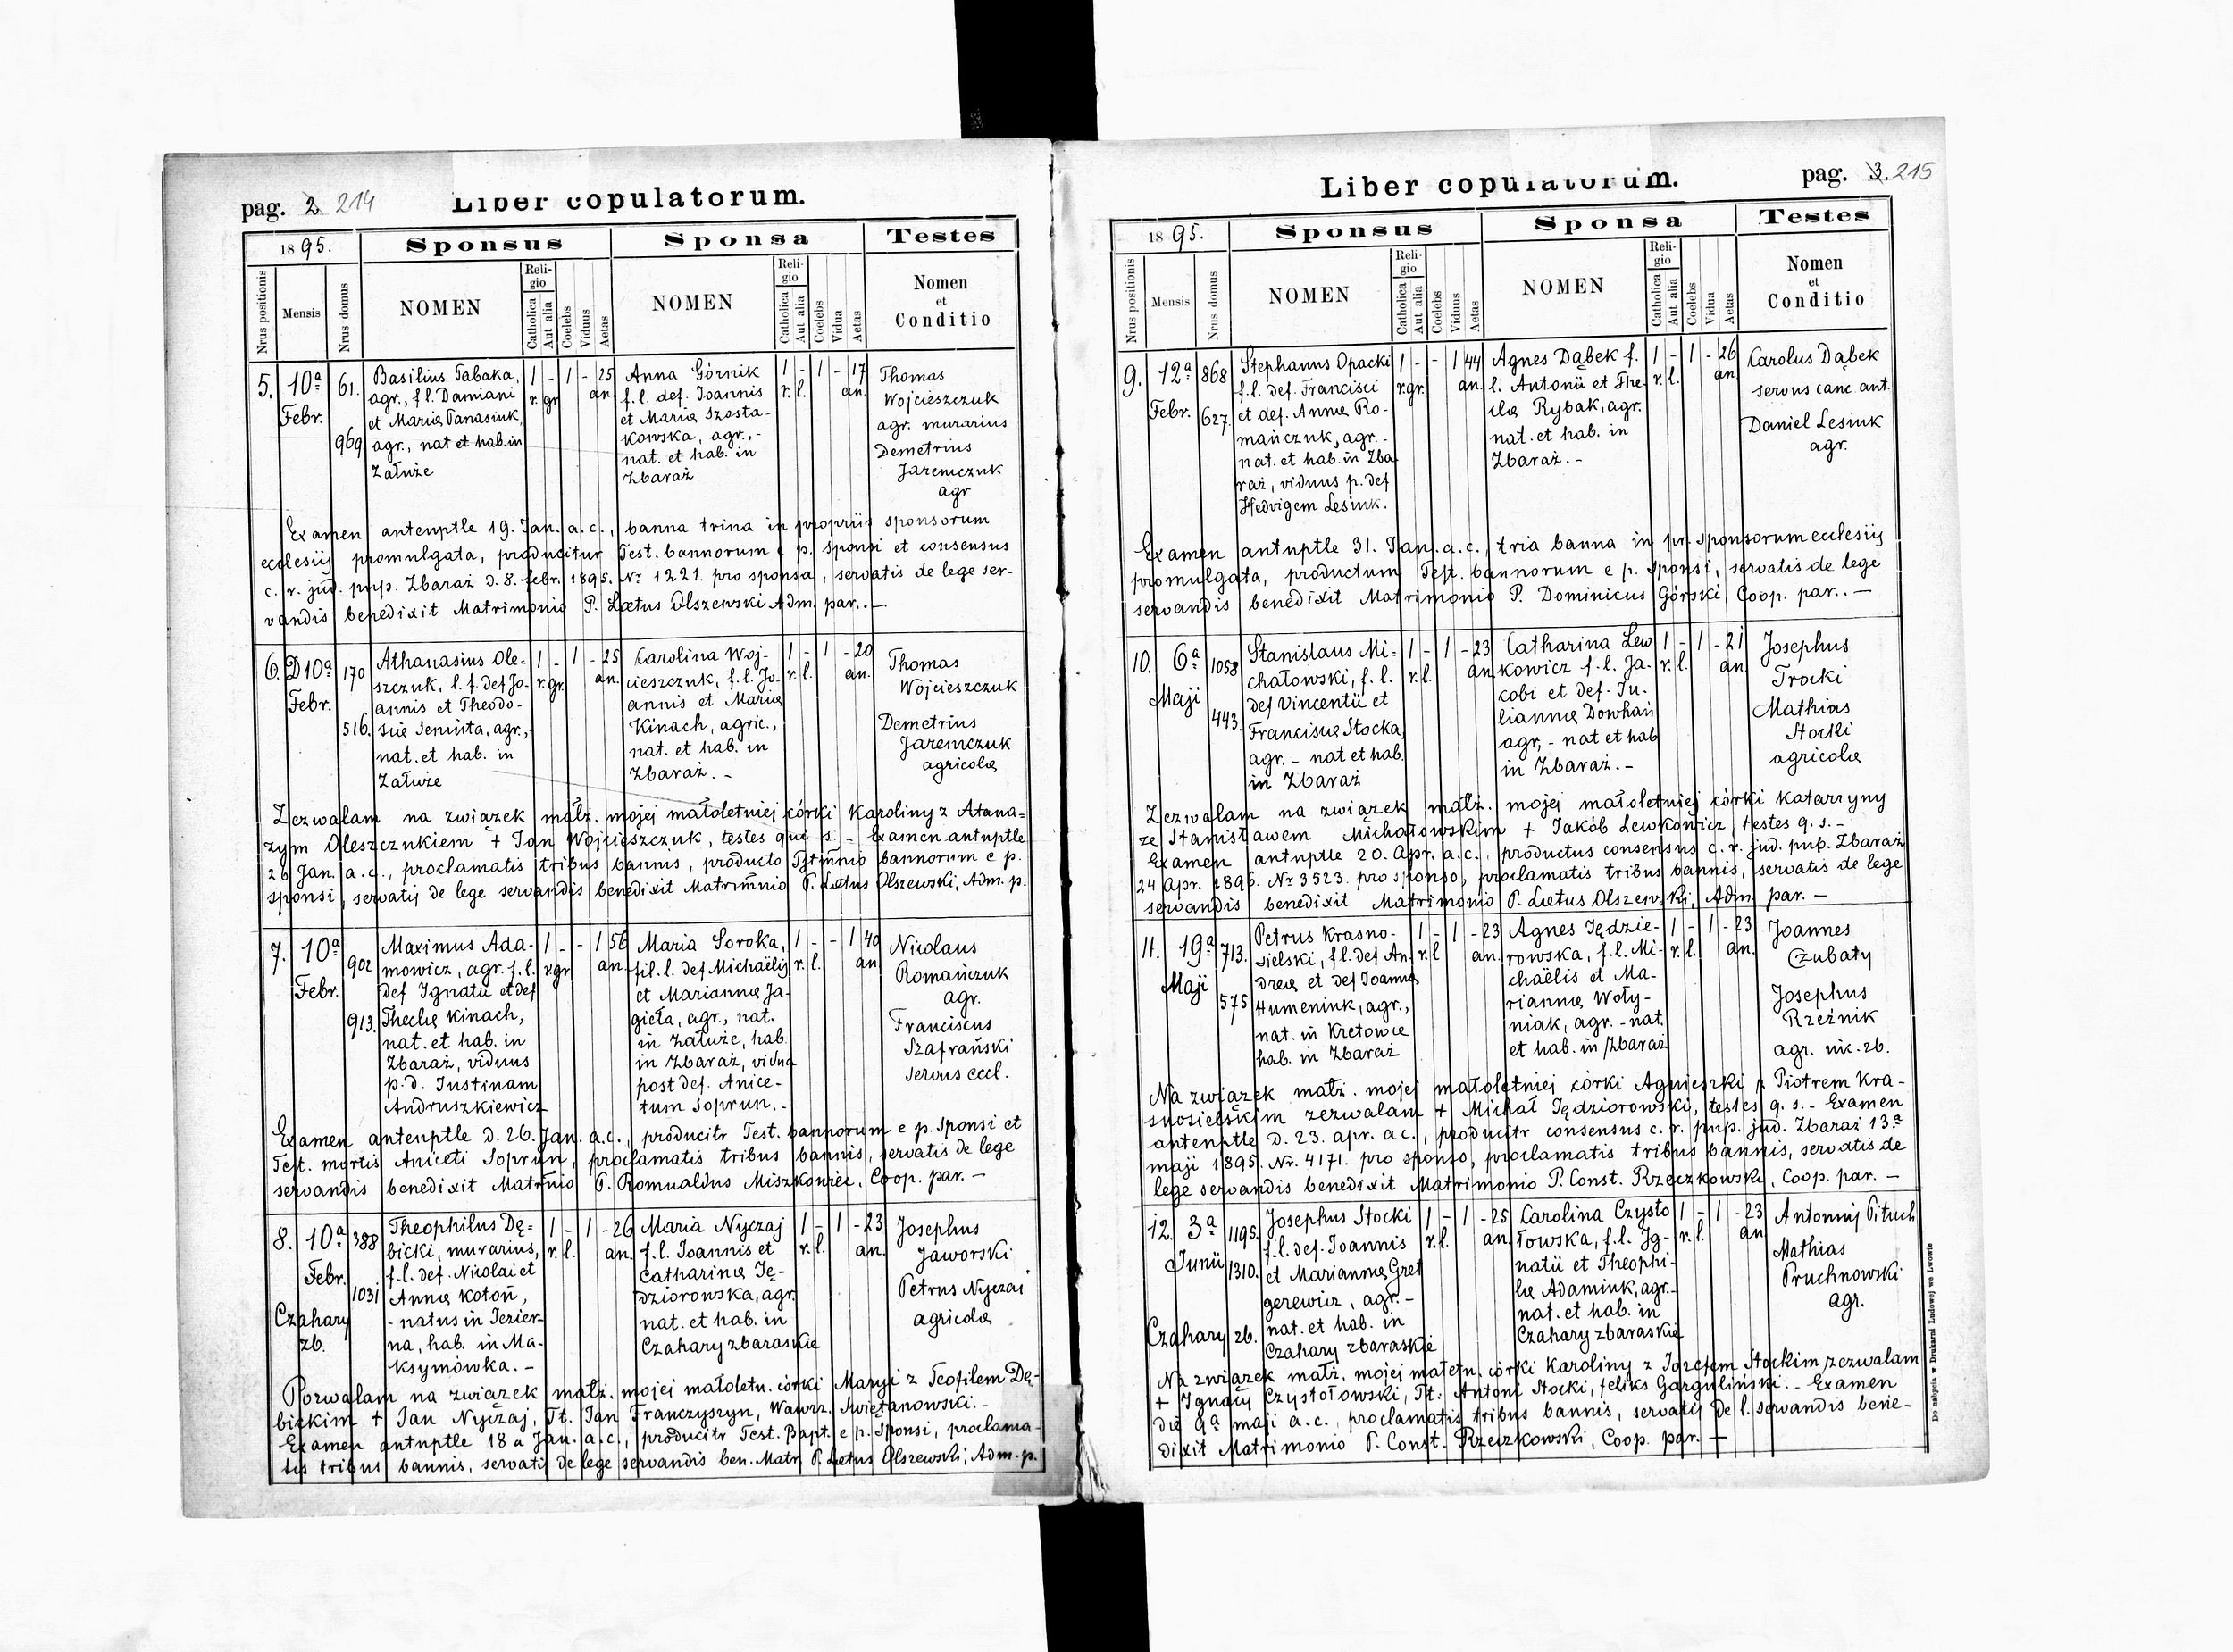 pag. 2 214
Liber copulatorum.
1895.
Sponsus
Sponsa
Testes
Nrus positionis
Mensis
Nrus domus
NOMEN
Religio
Catholica
Aut alia
Coelebs
Viduus
Aetas
NOMEN
Religio
Catholica
Aut alia
Coelebs
Vidua
Aetas
Nomen
et
Conditio
5.
10a
Febr.
61.
969.
Basilius Tabaka,
agr., f l. Damiani
et Mariæ Panasiuk,
agr., nat et hab. in
Załuże
1 - 1 - 25
r. gr an.
Anna Górnik
f. l. def. Joannis
et Mariæ Szosta-
kowska, agr., -
nat. et hab. in
Zbaraż
1 - 1 - 17
r. l. an.
Thomas
Wojcieszczuk
agr. murarius
Demetrius
Jaremczuk
agr
Examen antenuptle 19. Jan. a. c., banna trina in propriis sponsorum
ecclesiis promulgata, producitur Test. bannorum e p. sponsi et consensus
c. r. jud. pup. Zbaraż d. 8. febr. 1895. Nr 1221. pro sponsa, servatis de lege ser-
vandis benedixit Matrimonio P. Lætus Olszewski Adm. par. -
6.
D 10a
Febr.
170
516.
Athanasius Ole-
szczuk, l. f. def Jo-
annis et Theodo-
siæ Semista, agr.,
nat. et hab. in
Załuże
1 - 1 - 25
r. gr. an.
Carolina Woj-
cieszczuk, f. l. Jo-
annis et Mariæ
Kinach, agric.,
nat. et hab. in
Zbaraż. -
1 - 1 - 20
r. l. an.
Thomas
Wojcieszczuk
Demetrius
Jaremczuk
agricolæ
Zezwalam na związek małż. mojej małoletniej córki Karoliny z Atana-
zym Oleszczukiem + Jan Wojcieszczuk, testes qui s. - Examen antnuptle
26 Jan. a. c., proclamatis tribus bannis, producto Tstmnio bannorum e p.
sponsi, servatis de lege servandis benedixit Matrimnio P. Lætus Olszewski, Adm. p.
7.
10a
Febr.
902
913.
Maximus Ada-
mowicz, agr. f. l.
def Ignatii et def
Theclæ Kinach,
nat. et hab. in
Zbaraż, viduus
p. d. Justinam
Andruszkiewicz
1 - - 1 56
r. gr an.
Maria Soroka,
fil. l. def Michaëlis
et Mariannæ Ja-
gieła, agr., nat.
in Załuże, hab.
in Zbaraż, vidua
post def. Anice-
tum Soprun. -
1 - - 1 40
r. l. an
Nicolaus
Romańczuk
agr.
Franciscus
Szafrański
servus eccl.
Examen antenuptle d. 26. Jan. a. c., producitr Test. bannorum e p. Sponsi et
Test. mortis Aniceti Soprun, proclamatis tribus bannis, servatis de lege
servandis benedixit Matrimnio P. Romualdus Miszkoniec, Coop. par. -
8.
10a
Febr.
Czahary
zb.
388
1031
Theophilus Dę-
bicki, murarius,
f. l. def. Nicolai et
Annæ Kotoń,
- natus in Jezier-
na, hab. in Ma-
ksymówka. -
1 - 1 - 26
r. l. an.
Maria Nyczaj
f. l. Joannis et
Catharinæ Ję-
dziorowska, agr.
nat. et hab. in
Czahary zbaraskie
1 - 1 - 23
r. l. an.
Josephus
Jaworski
Petrus Nyczai
agricolæ
Pozwalam na związek małż. mojej małoletn. córki Maryi z Teofilem Dę-
bickim + Jan Nyczaj, Tt. Jan Franczyszyn, Wawrz. Swiętanowski. -
Examen antnuptle 18 a Jan. a. c., producitr Test. Bapt. e p. Sponsi, proclama-
tis tribus bannis, servatis de lege servandis ben. Matr. P. Lætus Olszewski, Adm. p.
pag. 3. 215
Liber copulatorum.
1895.
Sponsus
Sponsa
Testes
Nrus positionis
Mensis
Nrus domus
NOMEN
Religio
Catholica
Aut alia
Coelebs
Viduus
Aetas
NOMEN
Religio
Catholica
Aut alia
Coelebs
Vidua
Aetas
Nomen
et
Conditio
9.
12a
Febr.
868
627.
Stephanus Opacki
f. l. def. Francisci
et def. Annæ Ro-
mańczuk, agr. -
nat. et hab. in Zba
raż, viduus p. def
Hedvigem Lesiuk.
1 - - 1 44
r. gr. an.
Agnes Dąbek f.
l. Antonii et The-
clæ Rybak, agr.
nat. et hab. in
Zbaraż. -
1 - 1 - 26
r. l. an
Carolus Dąbek
servus canc. ant.
Daniel Lesiuk
agr.
Examen antnuptle 31. Jan. a. c., tria banna in pr. sponsorum ecclesiis
promulgata, productum Test. bannorum e p. sponsi, servatis de lege
servandis benedixit Matrimonio P. Dominicus Górski, Coop. par. . -
10.
6a
Maji
1058
443.
Stanislaus Mi-
chałowski, f. l.
def Vincentii et
Franciscæ Stocka,
agr. - nat et hab.
in Zbaraż
1 - 1 - 23
r. l. an.
Catharina Lew
kowicz f. l. Ja-
cobi et def. Ju-
liannæ Dowhań
agr, - nat et hab
in Zbaraż. -
1 - 1 - 21
r. l. an.
Josephus
Trocki
Mathias
Stocki
agricolæ
Zezwalam na związek małż. mojej małoletniej córki Katarzyny
ze Stanisławem Michałowskim + Jakób Lewkowicz, testes q. s. -
Examen antnuptle 20. Apr. a. c., productus consensus c. r. jud. pup. Zbaraż
24 Apr. 1896. Nr 3523. pro sponso, proclamatis tribus bannis, servatis de lege
servandis benedixit Matrimonio P. Lætus Olszewski, Adm. par. -
11.
19a
Maji
713.
575
Petrus Krasno-
sielski, f l. def An-
dreæ et def Joannæ
Humeniuk, agr.,
nat. in Kretowce
hab. in Zbaraż
1 - 1 - 23
r. l an.
Agnes Jędzie-
rowska, f. l. Mi-
chaëlis et Ma-
riannæ Woły-
niak, agr. - nat.
et hab. in Zbaraż
1 - 1 - 23
r. l. an.
Joannes
Czubaty
Josephus
Rzeźnik
agr. nic. zb.
Na związek małż. mojej małoletniej córki Agnieszki z Piotrem Kra-
snosielskim zezwalam + Michał Jędziorowski, testes q. s. - Examen
antenuptle d. 23. apr. a c., producitr consensus c. r. pup. jud. Zbaraż 13a
maji 1895. Nr. 4171. pro sponso, proclamatis tribus bannis, servatis de
lege servandis benedixit Matrimonio P. Const. Rzeczkowski, Coop. par. -
12.
3a
Junii
Czahary zb.
1195.
1310.
Josephus Stocki
f. l. def. Joannis
et Mariannæ Gret
gerewicz, agr. -
nat. et hab. in
Czahary zbaraskie
1 - 1 - 25
r. l. an.
Carolina Czysto
łowska, f. l. Ig-
natii et Theophi-
læ Adamiuk, agr. -
nat. et hab. in
Czahary zbaraskie
1 - 1 - 23
r. l. an
Antonius Pituch
Mathias
Pruchnowski
agr.
Na związek małż. mojej małetn. córki Karoliny z Józefem Stockim zezwalam
+ Ignacy Czystołowski, Tt: Antoni Stocki, feliks Gargulinski. - Examen
die 9a maji a. c., proclamatis tribus bannis, servatis de l. servandis bene-
dixit Matrimonio P. Const. Rzeczkowski, Coop. par. -
Do nabycia w Drukarni Ludowej we Lwowie